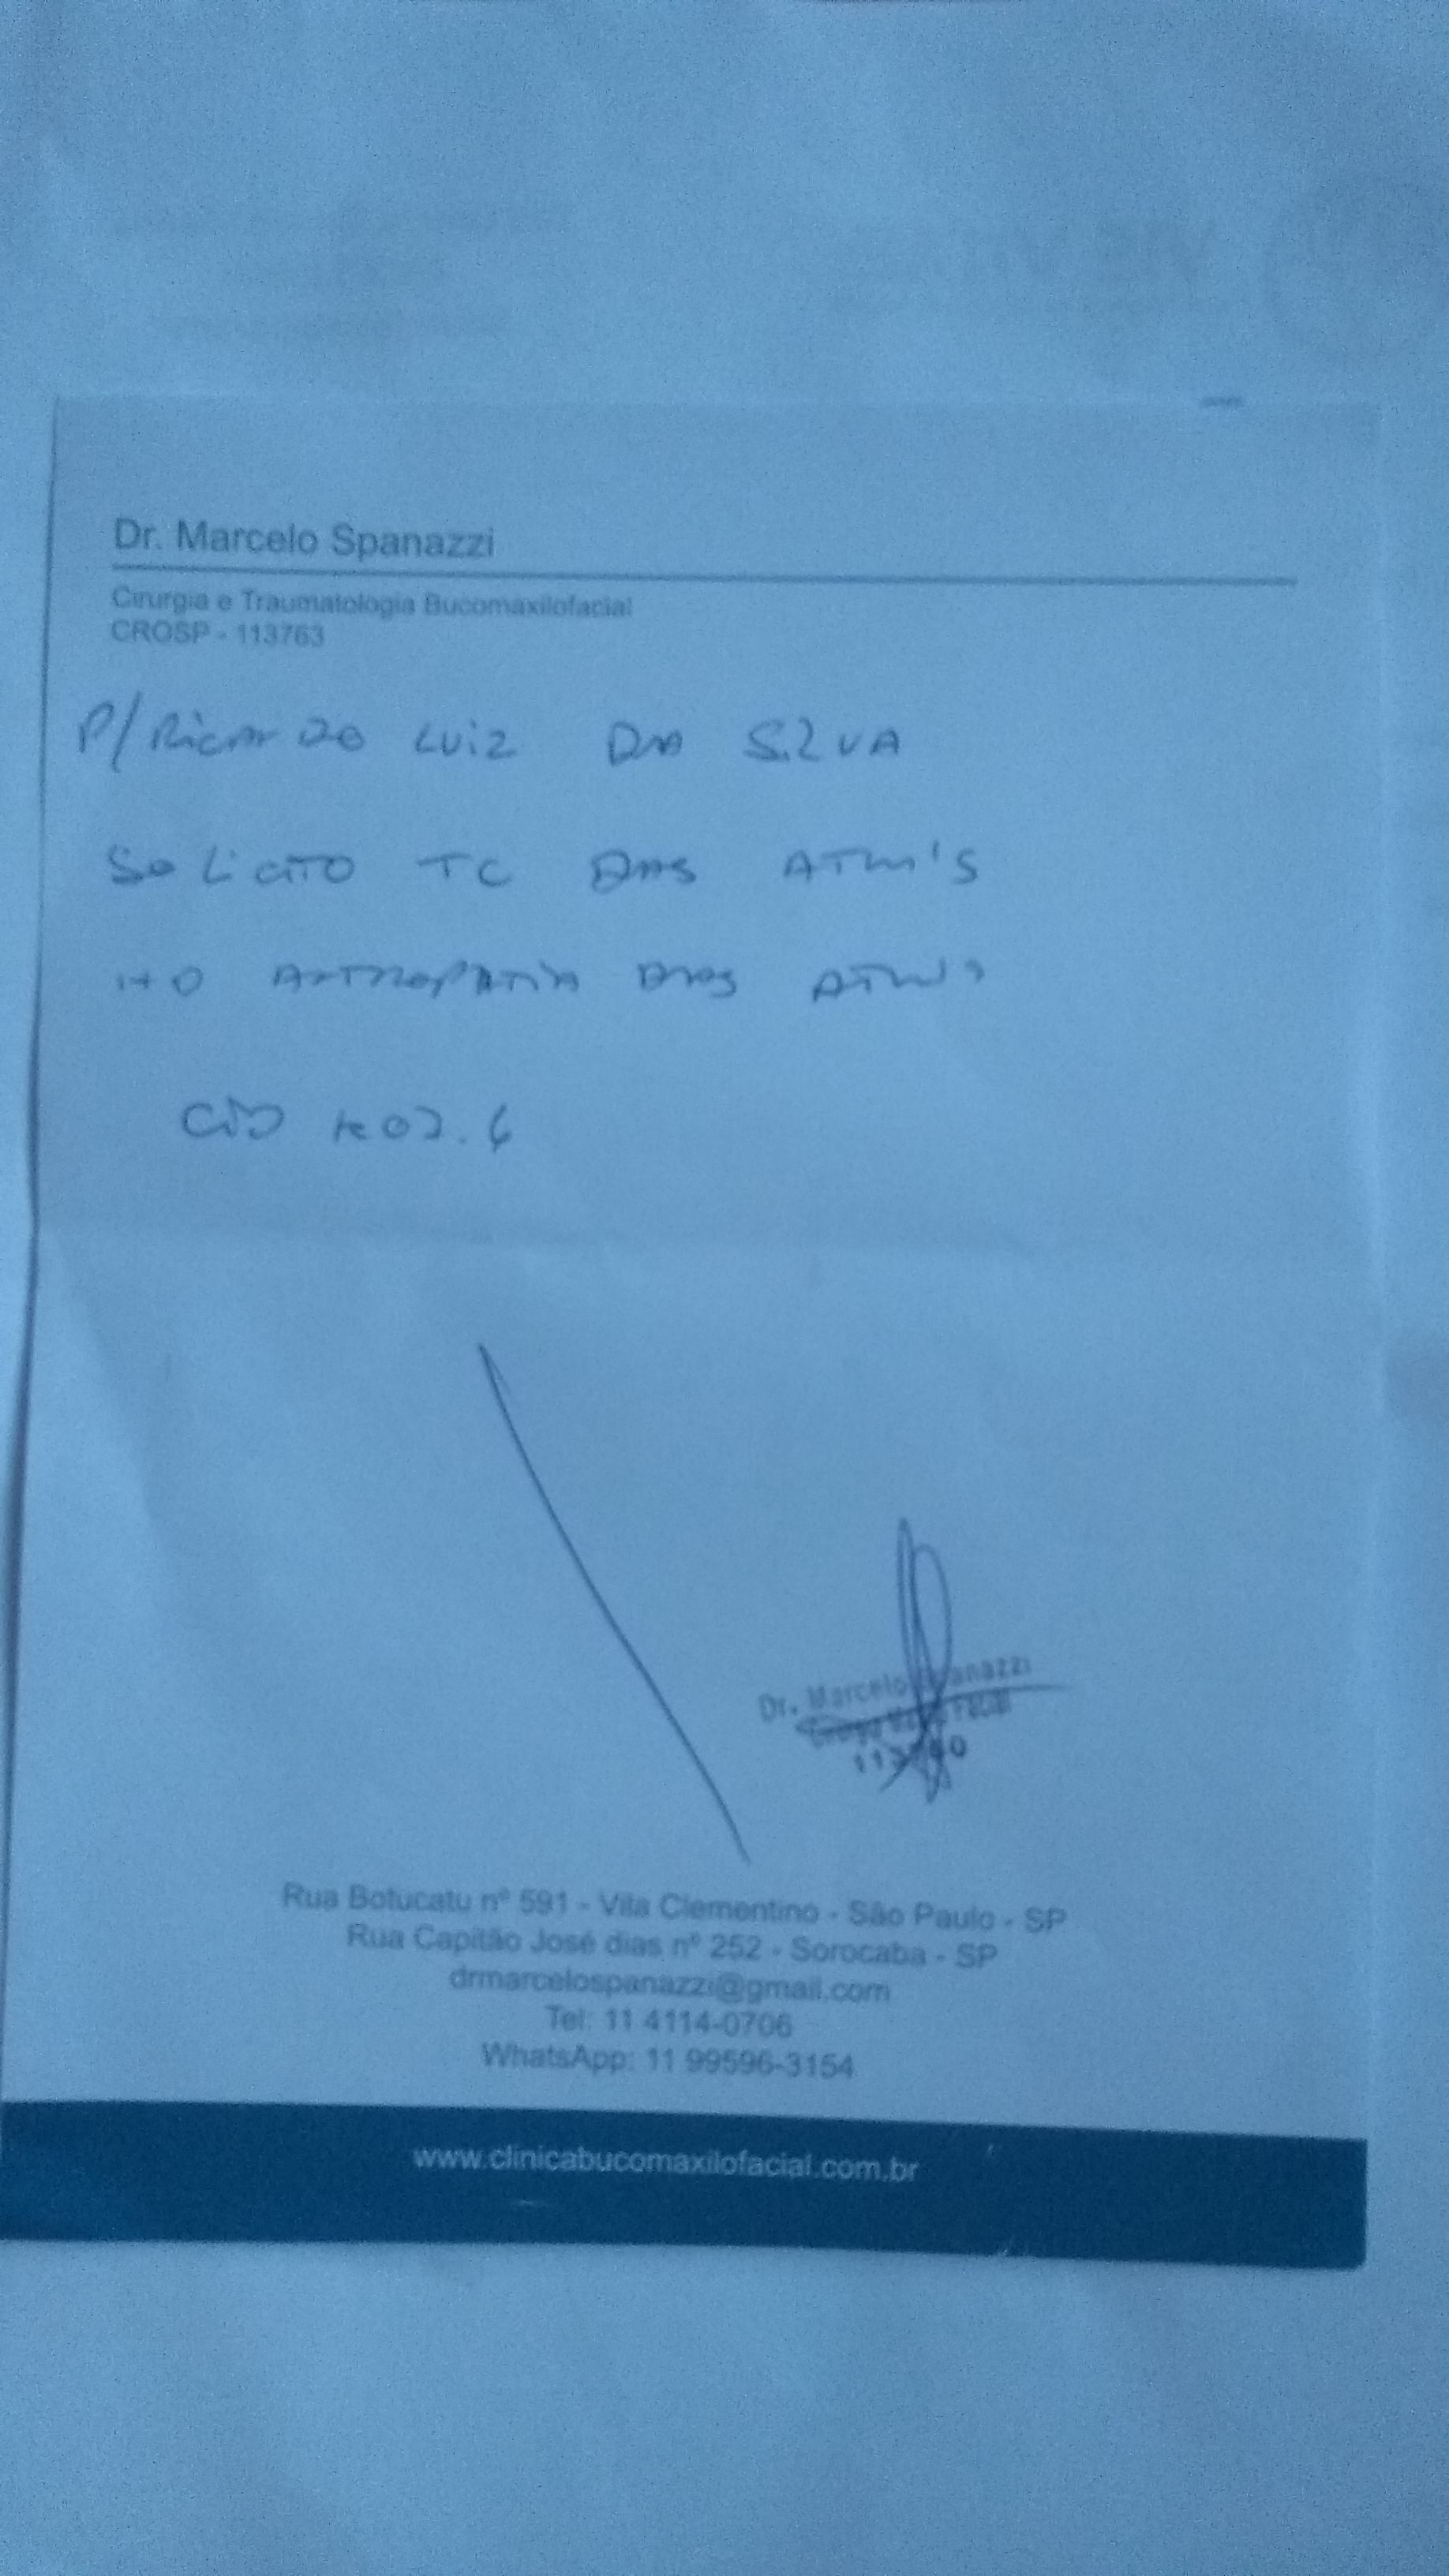 Dr. Marcelo Spanazzi
Cirurgia e Traumatologia Bucomaxilofacial
CROSP - 113763
P/ RICARDO LUIZ DA SILVA
SOLICITO TC DAS ATM'S
HD ARTROPATIA DAS ATM'S
CID K07.6
Dr. Marcelo Spanazzi
Rua Botucatu nº 591 - Vila Clementino - São Paulo - SP
Rua Capitão José dias nº 252 - Sorocaba - SP
drmarcelospanazzi@gmail.com
Tel: 11 4114-0706
WhatsApp: 11 99596-3154
www.clinicabucomaxilofacial.com.br